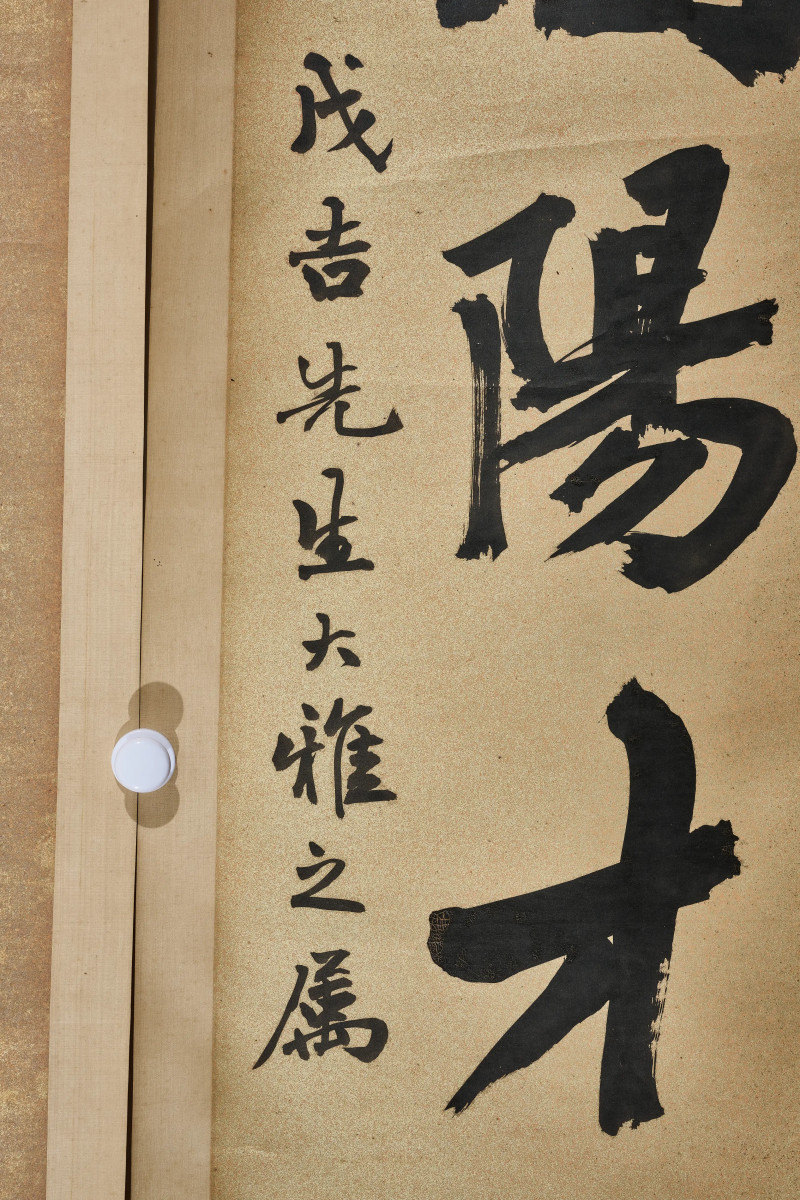 陽才
戊吉先生大雅之属